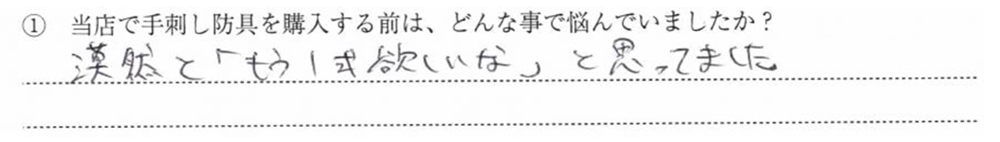 ① 当店で手刺し防具を購入する前は、どんな事で悩んでいましたか？
漠然と「もう1式欲しいな」と思ってました